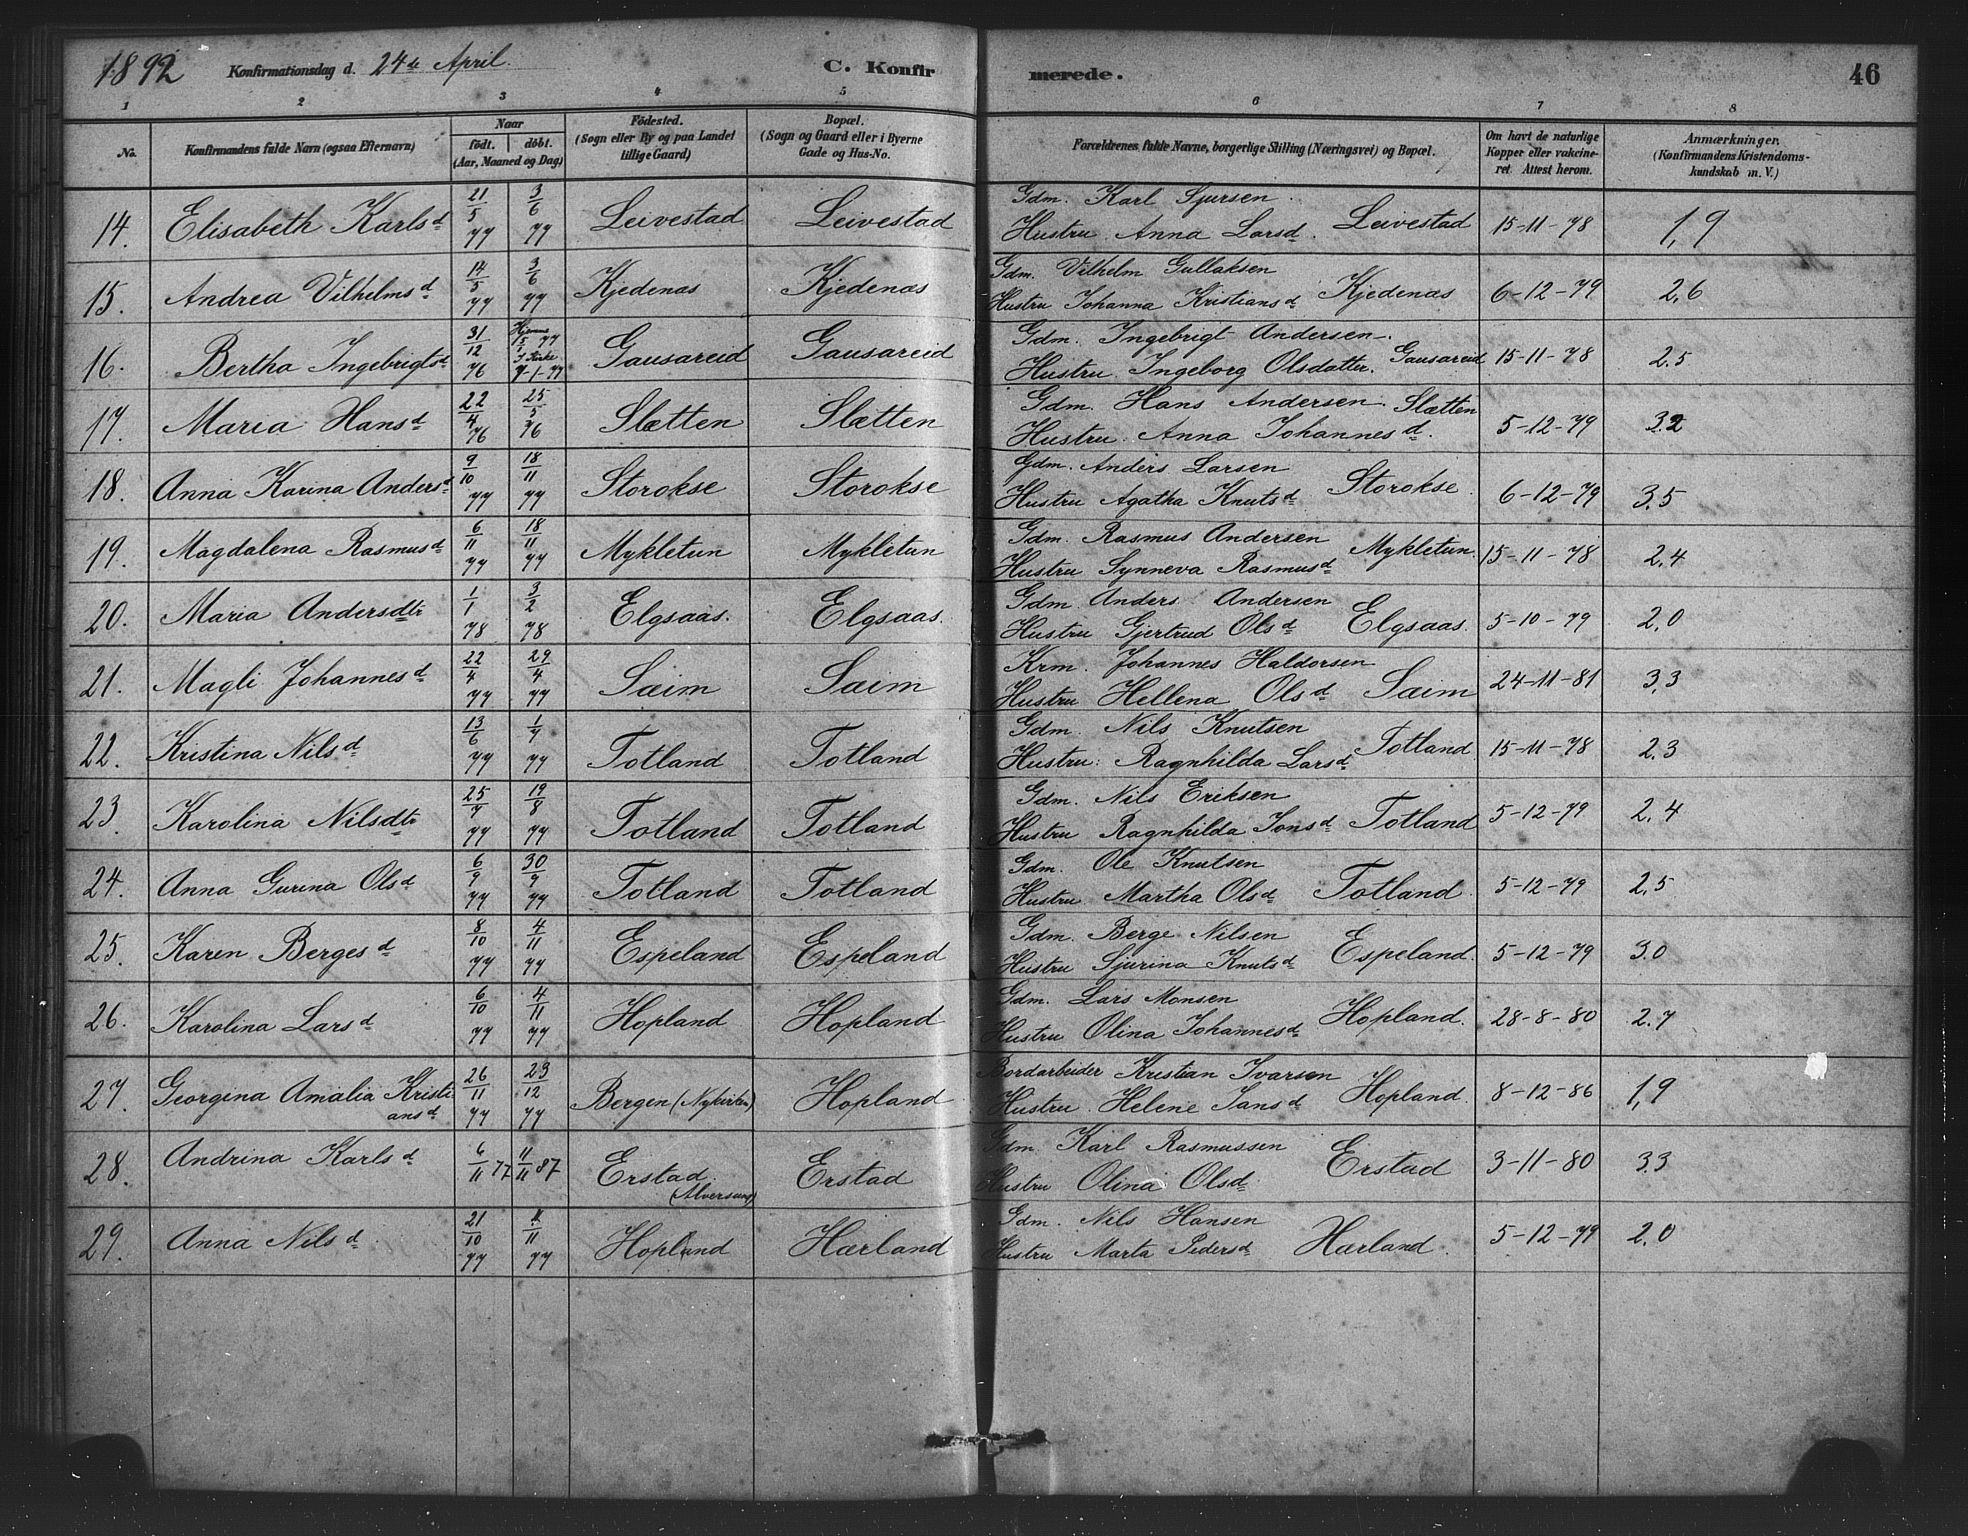 1892 Konfirmationsdag d. 24de April. C. Konfirmerede. 46
1 2 3 4 5 6 7 8
No. Konfirmandens fulde Navn (ogsaa Efternavn) Naar født. døbt. (Aar, Maaned og Dag) Fødested. (Sogn eller By og paa Landet tillige Gaard) Bopæl. (Sogn og Gaard eller i Byerne Gade og Hus-No. Forældrenes fulde Navne, borgerlige Stilling (Næringsvei) og Bopæl. Om havt de naturlige Kopper eller vakcineret. Attest herom. Anmærkninger. (Konfirmandens Kristendomskundskab m. V.)
14. Elisabeth Karlsd 21/5 77 3/6 77 Leivestad Leivestad Gdm. Karl Sjursen Hustru Anna Larsd. Leivestad 15-11-78 1,9
15. Andrea Vilhelmsd 14/5 77 3/6 77 Kjedenæs Kjedenæs Gdm. Vilhelm Gullaksen Hustru Johanna Kristiansd Kjedenæs 6-12-79 2,6
16. Bertha Ingebrigtsd 31/12 76 Hjemme 15/1 77 I Kirke 7-1-77 Gausareid Gausareid Gdm. Ingebrigt Andersen. Hustru Ingeborg Olsdatter. Gausareid 15-11-78 2.5
17. Maria Hansd 22/4 76 25/5 76 Slætten Slætten Gdm. Hans Andersen. Hustru Anna Johannesd. Slætten 5-12-79 3.2
18. Anna Karina Andersd 9/10 77 18/11 77 Storokse Storokse Gdm. Anders Larsen Hustru Agatha Knutsd Storokse 6-12-79 3.5
19. Magdalena Rasmusd 6/11 77 18/11 77 Mykletun Mykletun Gdm. Rasmus Andersen Hustru Synneva Rasmusd Mykletun. 15-11-78 2,4
20. Maria Andersdtr 1/1 78 3/2 78 Elgsaas. Elgsaas. Gdm. Anders Andersen Hustru Gjertrud Olsd Elgsaas. 5-10-79 2,0
21. Magli Johannesd 22/4 77 29/4 77 Sæim Sæim Krm. Johannes Haldorsen Hustru Hellena Olsd Sæim 24-11-81 3,3
22. Kristina Nilsd 13/6 77 1/7 77 Totland Totland Gdm. Nils Knutsen Hustru: Ragnhilda Larsd Totland 15-11-78 2.3
23. Karolina Nilsdtr 25/7 77 19/8 77 Totland Totland Gdm. Nils Eriksen Hustru Ragnhilda Jonsd Totland 5-12-79 2,4
24. Anna Gurina Olsd 6/9 77 30/9 77 Totland Totland Gdm. Ole Knutsen Hustru Martha Olsd Totland. 5-12-79 2,5
25. Karen Bergesd 8/10 77 4/11 77 Espeland Espeland Gdm. Berge Nilsen Hustru Sjurina Knutsd Espeland. 5-12-79 3.0
26. Karolina Larsd 6/10 77 4/11 77 Hopland Hopland Gdm. Lars Monsen Hustru Olina Johannesd Hopland. 28-8-80 2.7
27. Georgina Amalia Kristiansd 26/11 77 23/12 77 Bergen (Nykirken) Hopland Bordarbeider Kristian Ivarsen Hustru Helene Jansd Hopland. 8-12-86 1,9
28. Andrina Karlsd 6/11 77 11/11 87 Erstad (Alversund) Erstad Gdm. Karl Rasmussen Hustru Olina Olsd. Erstad 3-11-80 3.3
29. Anna Nilsd 21/10 77 11/11 77 Hopland Hærland Gdm. Nils Hansen Hustru Marta Pedersd Hærland. 5-12-79 2,0